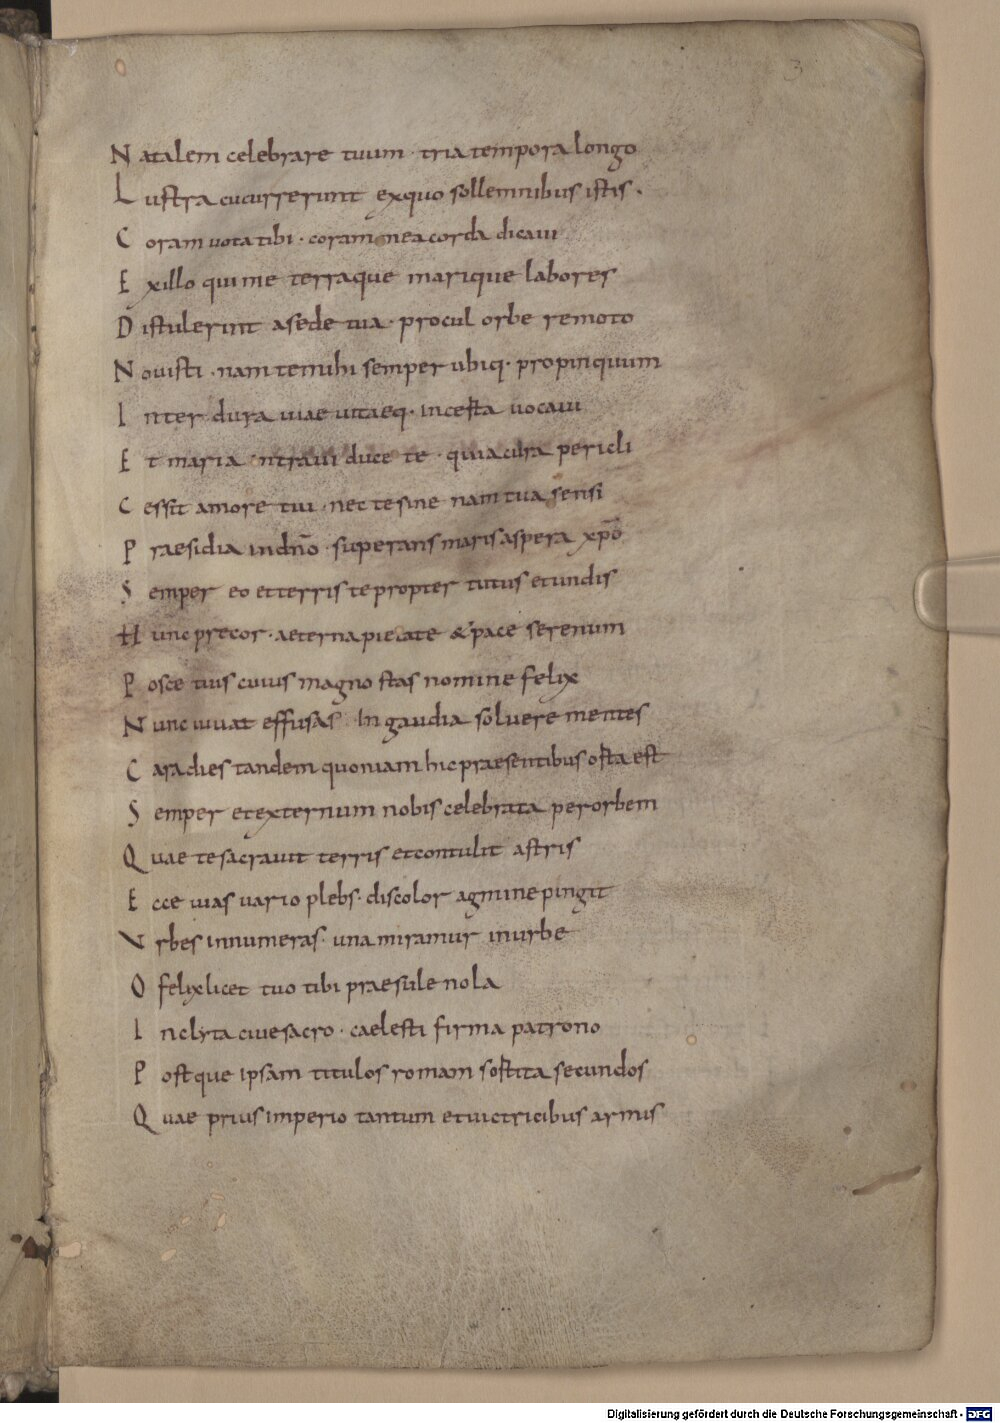 3
Natalem celebrare tuum · tria tempora longo
Lustra cucurrerunt exquo sollemnibus istis .
Coram uota tibi · coram mea corda dicaui
Exillo qui me terraque marique labores
Distulerint asede tua · procul orbe remoto
Nouisti · nam te mihi semper ubiq· propinquum
Inter dura uiae uitaeq· incesta uocaui
Et maria intraui duce te · quia cura pericli
Cessit amore tui · nec te sine nam tua sensi
Praesidia indn̄o · superans maris aspera xp̄o
Semper eo et terris te propter tutus et undis
Hunc precor · aeterna pietate & pace serenum
Posce tuis cuius magno stas nomine felix
Nunc iuuat effusas In gaudia soluere mentes
Cara dies tandem quoniam hic praesentibus orta est
Semper et externum nobis celebrata per orbem
Quae te sacrauit terris et contulit astris
Ecce uias uario plebs · discolor agmine pingit
Vrbes innumeras · una miramur in urbe
O felix licet tuo tibi praesule nola
Inclyta ciue sacro · caelesti firma patrono
Postque ipsam titulos romam sortita secundos
Quae prius imperio tantum et uictricibus armis
Digitalisierung gefördert durch die Deutsche Forschungsgemeinschaft - DFG